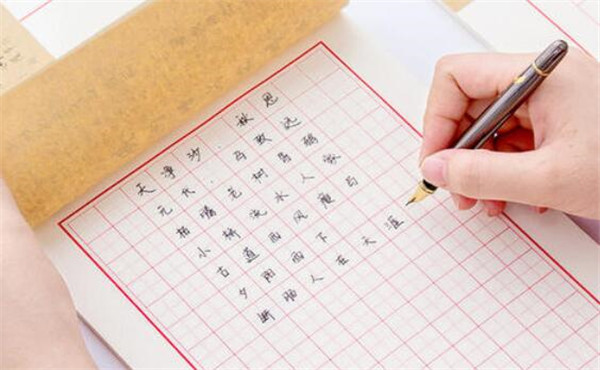 天净沙·秋思
元代·马致远
枯藤老树昏鸦
小桥流水人家
古道西风瘦马
夕阳西下
断肠人在天涯